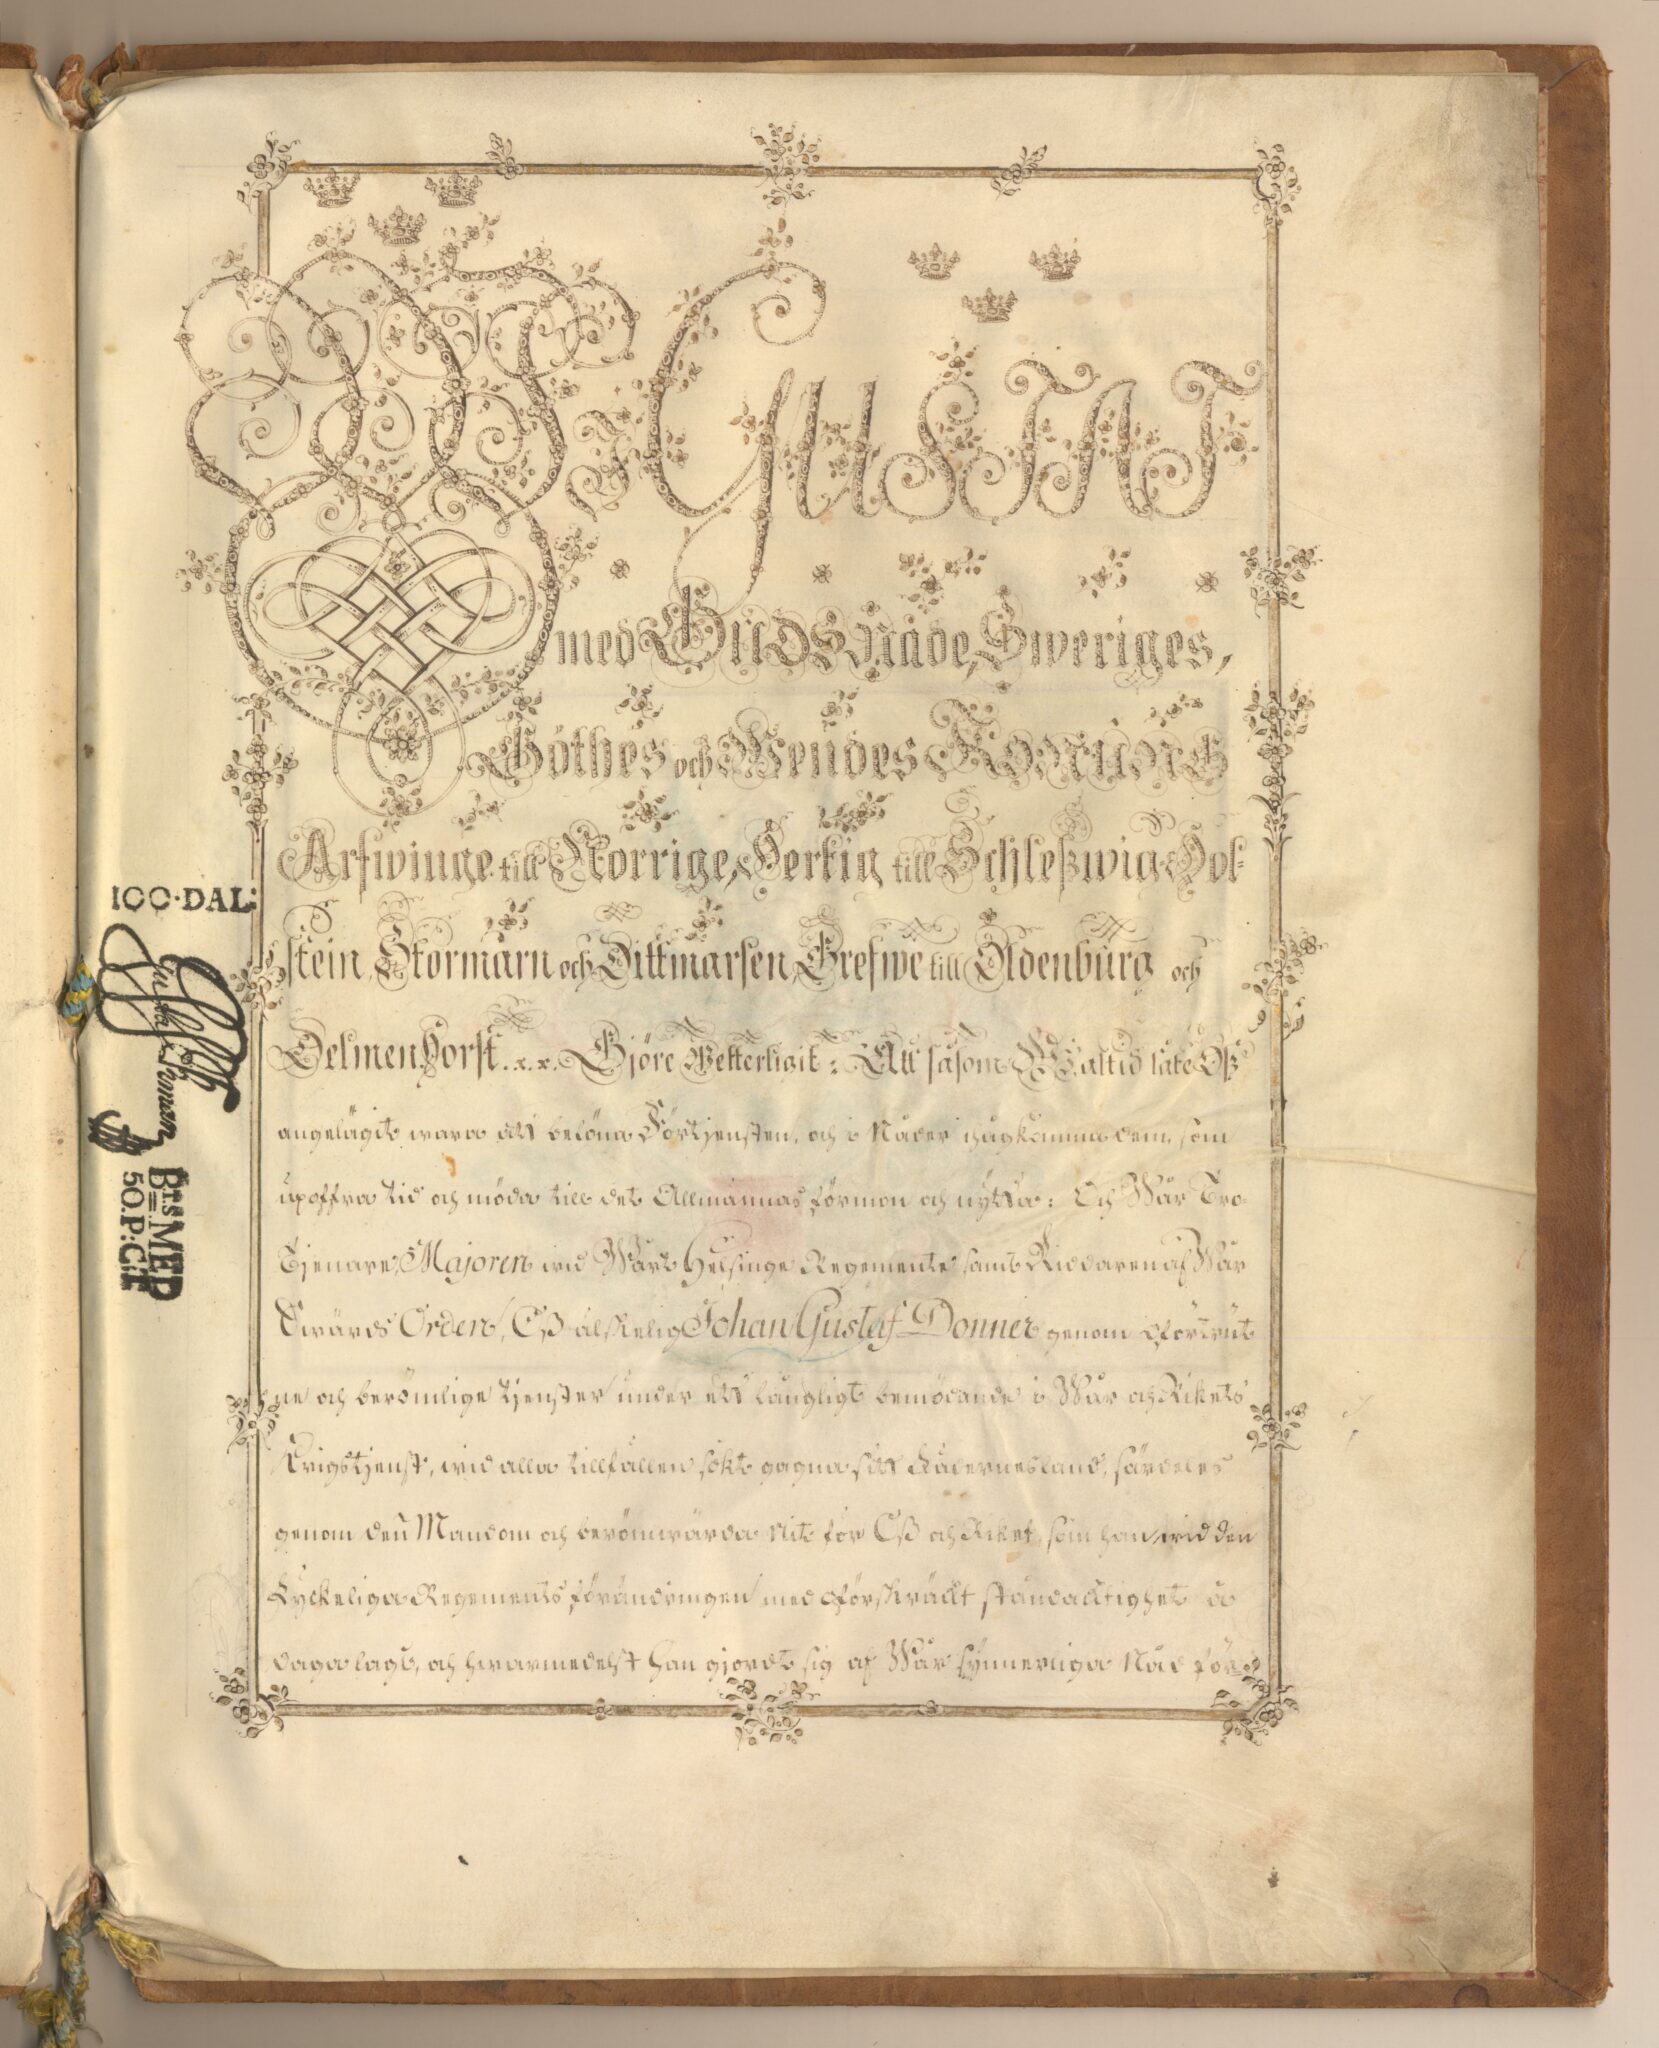 WJ GUSTAF
med GUDS Nåde, Sweriges,
Göthes och Wendes KONUNG
Arfwinge till Norrige, Hertig till Schleßwig Hol-
stein, Stormarn och Dittmarsen, Grefwe till Oldenburg och
DelmenHorst. x. x. Gjöre Wetterligit: Att såsom Wi altid låte Oß
angelägit wara att belöna Förtjensten, och i Nåder ihågkomma dem, som
upoffra tid och möda till det Allmännas förmon och nytta: Och Wår Tro-
Tjenare, Majoren wid Wårt Helsinge Regemente samt Riddaren af Wår
Swärds Orden, Oß älskelig Johan Gustaf Donner genom oförtrut
ne och berömlige tjenster under ett långligt bemödande i Wår och Rikets
Krigstjenst, wid alla tillfällen sökt gagna sitt Fädernesland, särdeles
genom den Mandom och berömwärda Nit för Oß och Riket, som han wid den
Lyckeliga Regements förändringen med oförskräckt ståndacktighet å
daga lagt, och hwarmedelst han gjordt sig af Wår synnerliga Nåd för-
100·DAL:
B:ts MED
50.P:C:t